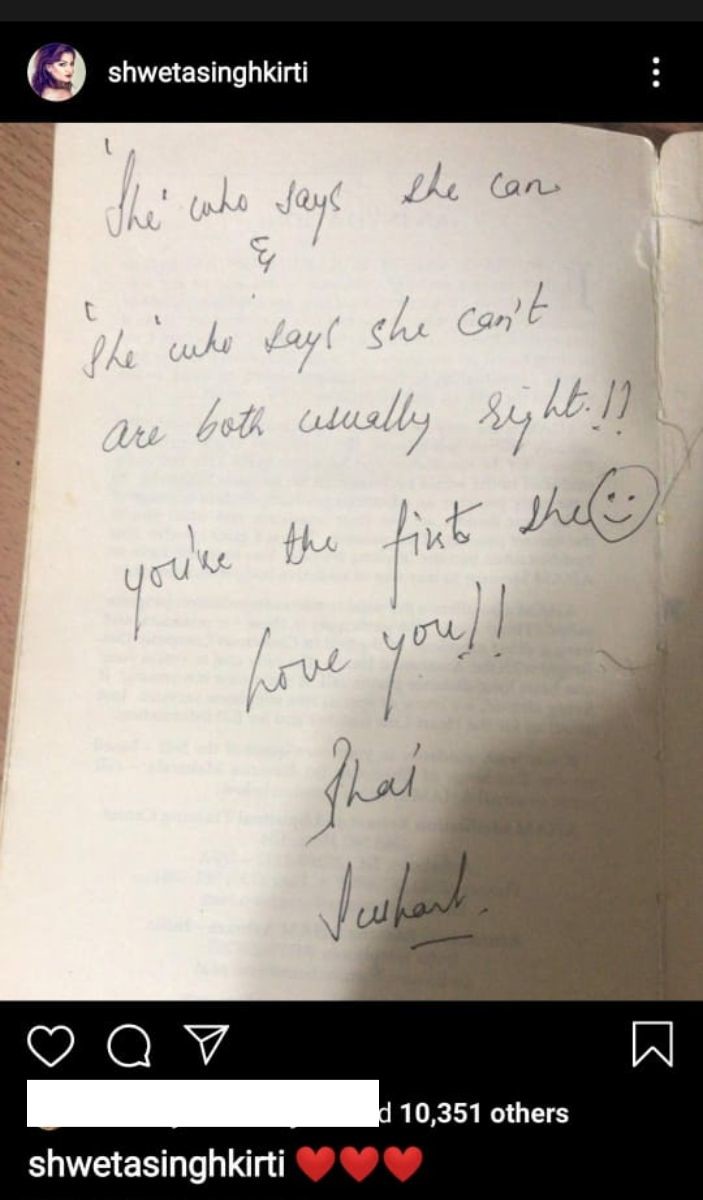 shwetasinghkirti
'She' who says she can
&
'She' who says she can't
are both usually right.!!
you're the first she
Love you!!
Bhai
Sushant.
d 10,351 others
shwetasinghkirti ❤❤❤